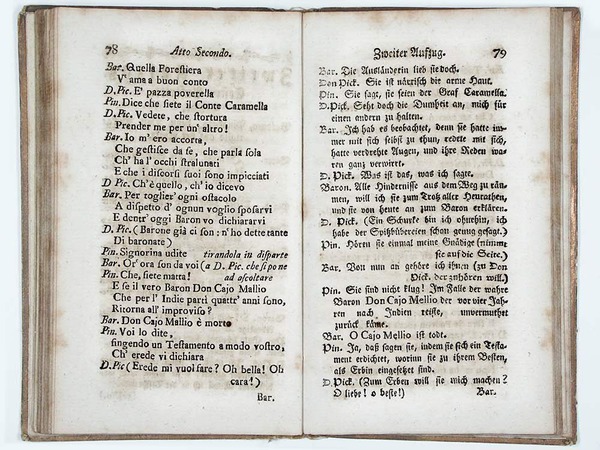 78 Atto Secondo.
Bar. Quella Forestiera
V' ama a buon conto
D. Pic. E' pazza poverella
Pin. Dice che siete il Conte Caramella
D. Pic. Vedete, che stortura
Prender me per un' altro!
Bar. Io m' ero accorta,
Che gestisce da se, che parla sola
Ch' ha l' occhi stralunati
E che i discorsi suoi sono impicciati
D Pic. Ch' è quello, ch' io dicevo
Bar. Per toglier' ogni ostacolo
A dispetto d' ognun voglio sposarvi
E dentr' oggi Baron vo dichiararvi
D. Pic. (Barone già ci son: n' ho dette tante
Di baronate)
Pin. Signorina udite tirandola in disparte
Bar. Or' ora son da voi (a D. Pic. che si pone
Pin. Che, siete matta! ad ascoltare
E se il vero Baron Don Cajo Mallio
Che per l' Indie partì quattr' anni sono,
Ritorna all' improviso?
Bar. Don Cajo Mallio è morto
Pin. Voi lo dite,
fingendo un Testamento a modo vostro,
Ch' erede vi dichiara
D. Pic (Erede mi vuol fare? Oh bella! Oh
cara!)
Bar.
Zweiter Aufzug. 79
Bar. Die Ausländerin lieb sie doch.
Don Pick. Sie ist närrisch die arme Haut.
Pin. Sie sagt, sie seien der Graf Caramella.
D. Pick. Seht doch die Dumheit an, mich für
einen andern zu halten.
Bar. Ich hab es beobachtet, denn sie hatte im-
mer mit sich selbst zu thun, redete mit sich,
hatte verdrehte Augen, und ihre Reden wa-
ren ganz verwirrt.
D. Pick. Was ist das, was ich sagte.
Baron. Alle Hindernisse aus dem Weg zu räu-
men, will ich sie zum Troß aller Heurathen,
und sie von heute an zum Baron erklären.
D. Pick. (Ein Schurke bin ich ohnehin, ich
habe der Spitzbübereien schon genug gesagt.)
Pin. Hören sie einmal meine Gnädige (nimmt
sie auf die Seite.)
Bar. Von nun an gehöre ich ihnen (zu Don
Pick. der zuhören will.)
Pin. Sie sind nicht klug! Im Falle der wahre
Baron Don Cajo Mellio der vor vier Jah-
ren nach Indien reiste, unvermuthet
zurück käme.
Bar. O Cajo Mellio ist todt.
Pin. Ja, daß sagen sie, indem sie sich ein Testa-
ment erdichtet, worinn sie zu ihrem Besten,
als Erbin eingesetzt sind.
D. Pick. (Zum Erben will sie mich machen?
O liebe! o beste!) Bar.